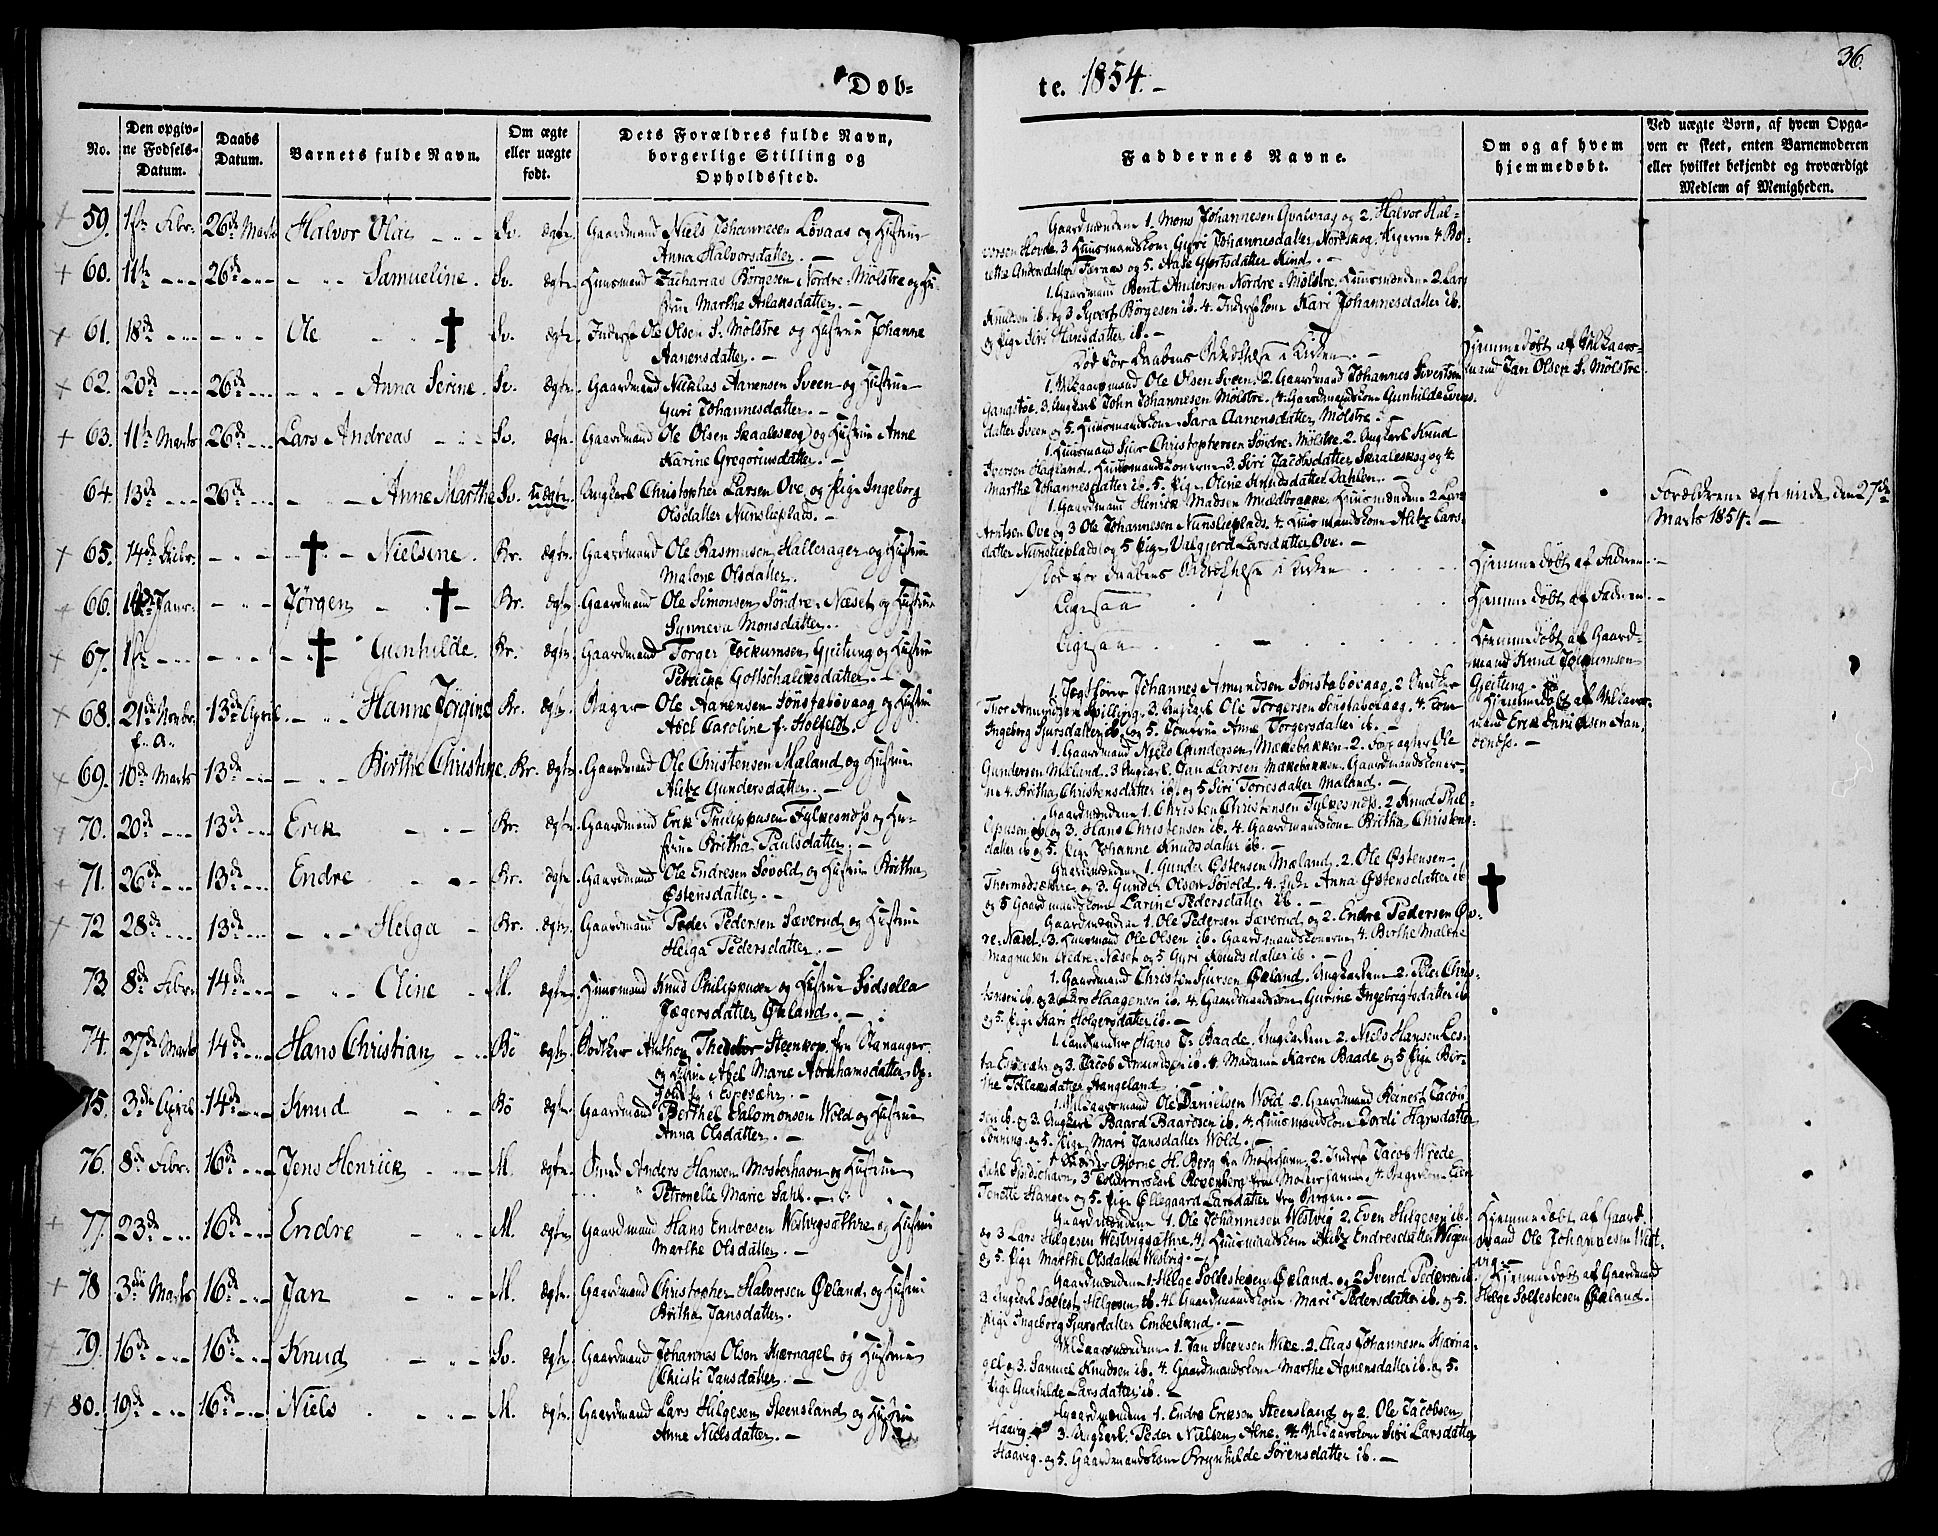 36.
Döb=
te. 1854.-
No.
Den opgiv-
ne Födsels-
Datum.
Daabs
Datum.
Barnets fulde Navn.
Om ægte
eller uægte
født.
Dets Forældres fulde Navn,
borgerlige Stilling og
Opholdssted.
Faddernes Navne.
Om og af hvem
hjemmedøbt.
Ved uægte Børn, af hvem Opga-
ven er skeet, enten Barnemoderen
eller hvilket bekjendt og troværdigt
Medlem af Menigheden.
59. 1ste Febr. 26de Marts Halvor Sv. Ægte. Gaardmand Niels Johannesen Løvaas og Hustrue
Anna Halvorsdatter.
60. 11te 26de Samueline. Sv. Ægte. Huusmand Zacharias Børgesen Nordre-Mølstre og Hu-
strue Marthe Aslaksdatter.
61. 18de Ole Sv. Ægte. Inderst Ole Olsen S. Mølstre og Hustrue Johanne
Aanensdatter.
62. 20de 26de Anna Serine. Sv. Ægte. Gaardmand Niklas Aanensen Sveen og Hustrue
Guri Johannesdatter.
63. 11te Marts 26de Lars Andreas Sv. Ægte. Gaardmand Ole Olsen Skaaleskog og Hustrue Anne
Karine Gregoriusdatter.
64. 13de 26de Anne Marthe Sv. Uægte. Ungkarl Christopher Larsen Ove og Pige Ingeborg
Olsdatter Nunslieplads.
65. 14de Nielsine. Br. Ægte. Gaardmand Ole Rasmusen Hallerager og Hustrue
Malene Olsdatter.
66. Janr. Jørgen Br. Ægte. Gaardmand Ole Simonsen Søndre-Næset og Hustrue
Synneva Monsdatter.
67. 1ste Gunhilde. Br. Ægte. Gaardmand Torger Jockumsen Gjeitung og Hustrue
Gottschalksdatter.
68. 21de Novbr. 13de April Hanne Jørgine Br. Ægte. Ole Aanensen Sønstabøvaag og Hustrue
f. A. Abel Caroline f. Holfeldt.
69. 10de Marts 13de Birthe Christine Br. Ægte. Gaardmand Ole Christensen Mæland og Hustrue
Alitz Gundersdatter.
70. 20de 13de Erik Br. Ægte. Gaardmand Erik Philippusen Fylkesnæss og Hu-
strue Britha Paulsdatter.
71. 26de 13de Endre Br. Ægte. Gaardmand Ole Endresen Søvold og Hustrue Britha
Østensdatter.
72 28de 13de Helga Br. Ægte. Gaardmand Peder Pedersen Sæverud og Hustrue
Helga Pedersdatter.
73 8de Febr. 14de Oline M. Ægte. Huusmand Knud Philippusen og Hustrue Sødsella
Jægersdatter Økland.
74. 27de Marts 14de Hans Christian Bö Ægte. Bødker Anthon Theodor Steenkop fra Stavanger
og Hustrue Abel Marie Abrahamsdatter Op-
hold i Espevær.
75. 3die April 14de Knud Bö Ægte. Gaardmand Berthel Salomonsen Wold og Hustrue
Anna Olsdatter.
76. 8de Febr. 16de Jens Henrick M. Ægte. Smed Anders Hansen Mosterhavn og Hustrue
Petronelle Marie Sahl.
77. 23de 16de Endre M. Ægte. Gaardmand Hans Endresen Westvigsæthre og Hustrue
Marthe Olsdatter.
78 3die Marts 16de Jan M. Ægte. Gaardmand Christopher Halvorsen Økland og Hustrue
Britha Jansdatter.
79. 16de 16de Knud Sv. Ægte. Gaardmand Johannes Olson Hærnagel og Hustrue
Christi Jansdatter.
80. 19de 16de Niels M. Ægte. Gaardmand Lars Helgesen Steensland og Hustrue
Anne Nielsdatter.
Gaardmændene 1. Mons Johannesen Qvalvaag og 2. Halvor Hal-
vorsen Hovda. 3 Huusmandskone Guri Johannesdatter Nordskog. Pigerne 4. Be-
rethe Andersdatter og 5. Aase Gjertsdatter Rind.
1. Gaardmand Bent Andersen Nordre-Mølstre. Huusmændene 2 Lars
Knudsen ib. og 3 Sjvert Børgesen ib. 4. Inderstkone Kari Johannesdatter ib.
og Pige Siri Hansdatter ib.
Død før Daabens Bekræftelse i Kirken.
Hjemmedøbt af Vilkaars-
mand Jan Olsen S. Mølstre
1. Vilkaarsmand Ole Olsen Sveen. 2. Gaardmand Johannes Sivertsen
Gangstøe. 3. Ungkarl John Johannesen Mølstre. 4. Gaardmandskone Gunhilde Svens-
datter Sveen og 5. Huusmandskone Sara Aanensdatter Mølstre.
1. Huusmand Siur Christophersen Søndre-Mølstre. 2. Ungkarl Knud
Iversen Hagland. Huusmandskonerne 3. Siri Jacobsdatter Skaaleskog og 4
Marthe Johannesdatter ib. 5. Pige Oline Knudsdatter Dahlen.
1. Gaardmand Henrik Madsen Mældbrakke. Huusmændene 2 Lars
Arntsen Ove og 3 Ole Johannesen Nunslieplads. 4. Huusmandskone Alitz Lars-
datter Nunslieplads og 5 Pige Valgjerd Larsdatter Ove.
Forældrene ægteviede den 27de
Marts 1854.
Død før Daabens Bekræftelse i Kirken
Hjemmedøbt af Faderen.
Ligesaa
Hjemmedøbt af Faderen.
Ligesaa
Hjemmedøbt af Gaard-
mand Knud Jockumsen
Gjeitung.
1. Jægtfører Johannes Amundsen Sønstabøvaag. 2
Thor Amundsen 3. Ungkarl Ole Torgersen Sønstabøvaag. 4. Kone
Ingeborg Sjursdatter ib. og 5. Anne Torgersdatter ib.
Hjemmedøbt af Vilkaars-
mand Erik Danielsen
1. Gaardmand Niels Gundersen Mækebakken. 2. Ole
Gundersen Mæland. 3 Ungkarl Jan Larsen Mækebakken. Gaardmandskoner-
ne 4. Britha Christensdatter ib. og 5 Siri Torresdatter Mæland.
Gaardmændene 1. Christen Christensen Fylkesnæss. 2 Knud Phil-
ippusen ib. og 3. Hans Christensen ib. 4. Gaardmandskone Britha Christens-
datter ib. og 5. Pige Johanne Knudsdatter ib.
Gaardmændene 1. Gunder Østensen Mæland. 2. Ole Østensen
og 3. Gunder Olson Søvold. 4. Enke Anna Østensdatter ib
og 5 Gaardmandskone Larine Pedersdatter ib.
Gaardmændene 1. Ole Pedersen Sæverud og 2. Endre Pedersen Øv-
re-Næset. 3. Huusmand Ole Olsen ib. Gaardmandskonerne 4. Birthe Malene
Magnusen Nedre-Næset og 5 Guri Knudsdatter ib.
1. Gaardmand Christen Sjursen Økland. Ungkarlene 2. Peter Chris-
tensen ib. og 3. Lars Haagensen ib. 4. Gaardmandskone Gurine Ingebrigtsdatter ib.
og 5. Pige Kari Holgersdatter ib.
1. Landhandler Hans T. Baade. Ungkarlene 2. Niels Hansen
Espevær og 3. Jacob Amundsen ib. 4. Madame Karen Baade og 5 Pige Bir-
the Tollaksdatter Stangeland
1. Vilkaarsmand Ole Danielsen Wold. 2. Gaardmand Reinert Jacob-
sen ib. og 3. Ungkarl Baard Baardsen ib. 4. Huusmandskone Gordi Hansdatter
og 5. Pige Mari Jansdatter Wold.
Bjørne H. Berg fra Mosterhavn. 2. Inderst Jacob Wrede
3. Rosenberg fra Mosterhavn. 4.
Tonette Hansen og 5. Pige Ellegaard Larsdatter fra Bergen.
Gaardmændene 1. Ole Johannesen Westvig 2. Even Helgesen ib.
og 3 Lars Helgesen Westvigsæthre. 4. Huusmandskone Alitz Endresdatter
og 5. Pige Marthe Olsdatter Westvig.
Hjemmedøbt af Gaard-
mand Ole Johannesen West-
vig.
Gaardmændene 1. Helge Solfestesen Økland og 2 Svend Pedersen ib.
3. Ungkarl Solfest Helgesen ib. 4. Gaardmandskone Mari Pedersdatter ib. og 5.
Pige Ingeborg Sjursdatter Emberland.
Hjemmedøbt af Gaardmand
Helge Solfestesen Økland.
Vilkaarsmændene 1. Jan Steensen Wike. 2. Elias Johannesen Hærna-
gel og 3. Samuel Knudsen ib. 4. Gaardmandskone Marthe Aanensdatter ib. og 5.
Pige Gunhilde Larsdatter ib.
Gaardmændene 1. Endre Eriksen Steensland og 2. Ole Jacobsen
Haavig. 3. Ungkarl Peder Nielsen Alne. 4. Vilkaarskone Siri Larsdatter
Haavig og 5. Gaardmandskone Brynhilde Sørensdatter ib.